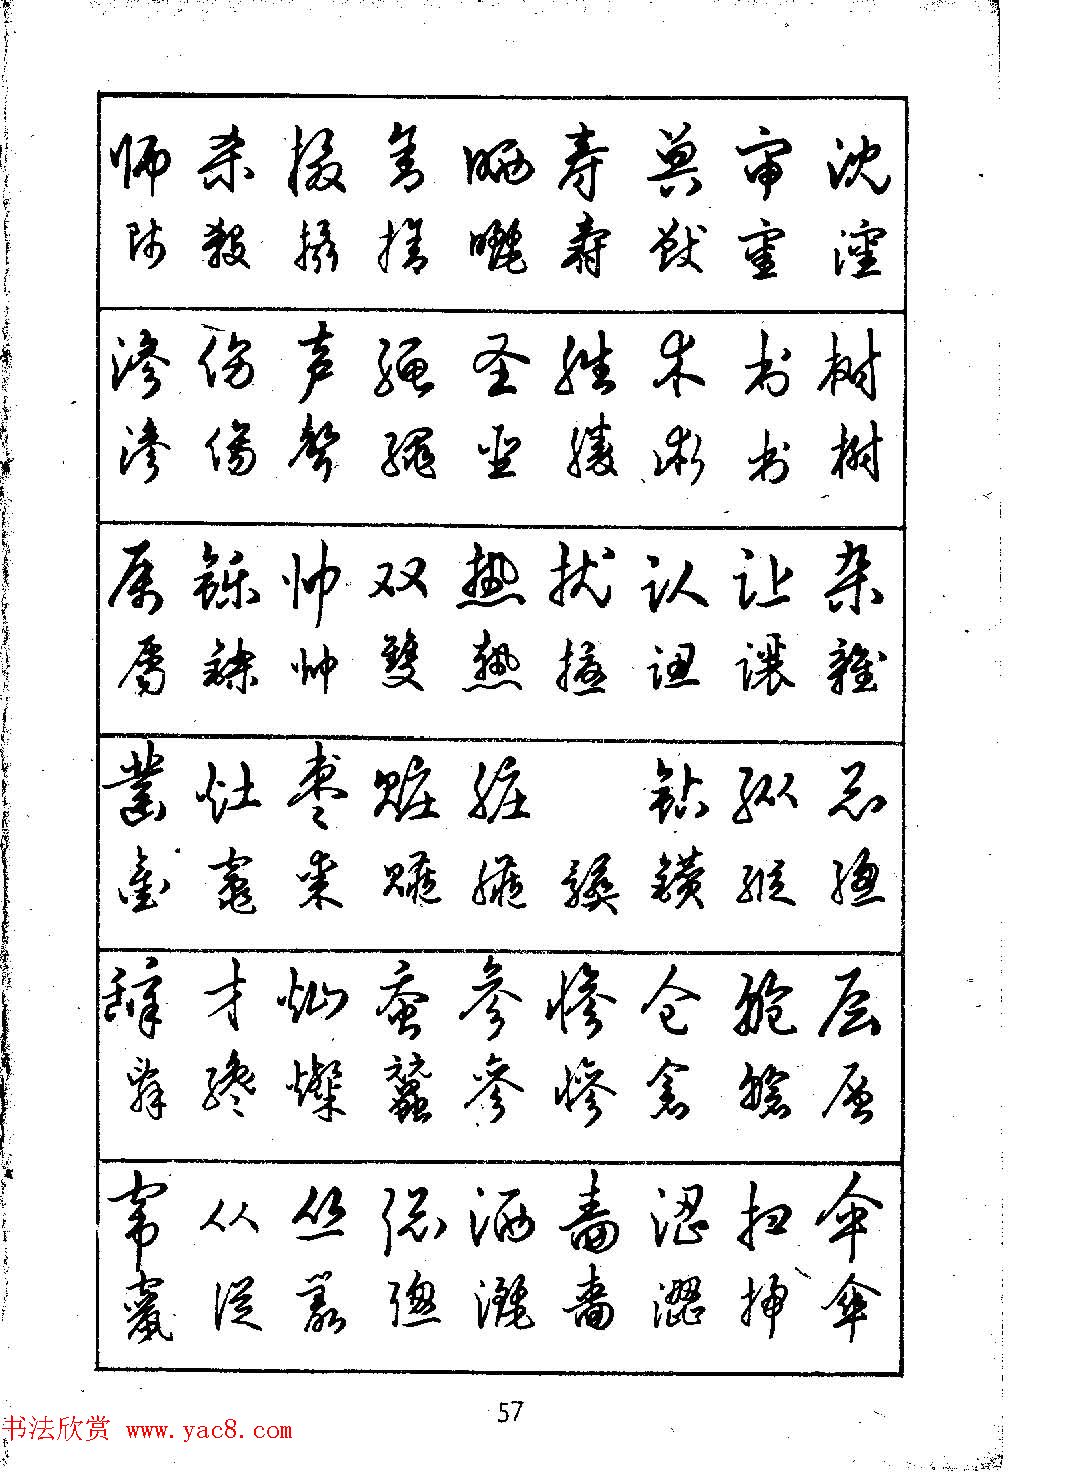 师 杀 摄 舍 晒 寿 兽 审 沈
師 殺 攝 捨 曬 壽 獸 審 瀋
渗 伤 声 绳 圣 胜 术 书 树
滲 傷 聲 繩 聖 勝 術 書 樹
属 铄 帅 双 热 扰 认 让 杂
屬 鑠 帥 雙 熱 擾 認 讓 雜
凿 灶 枣 赃 脏 钻 纵 总
鑿 竈 棗 贜 臟 髒 鑽 縱 總
辞 才 灿 蚕 参 惨 仓 舱 层
辭 纔 燦 蠶 參 慘 倉 艙 層
窜 从 丛 聪 洒 啬 涩 扫 伞
竄 從 叢 聰 灑 嗇 澀 掃 傘
57
书法欣赏 www.yac8.com